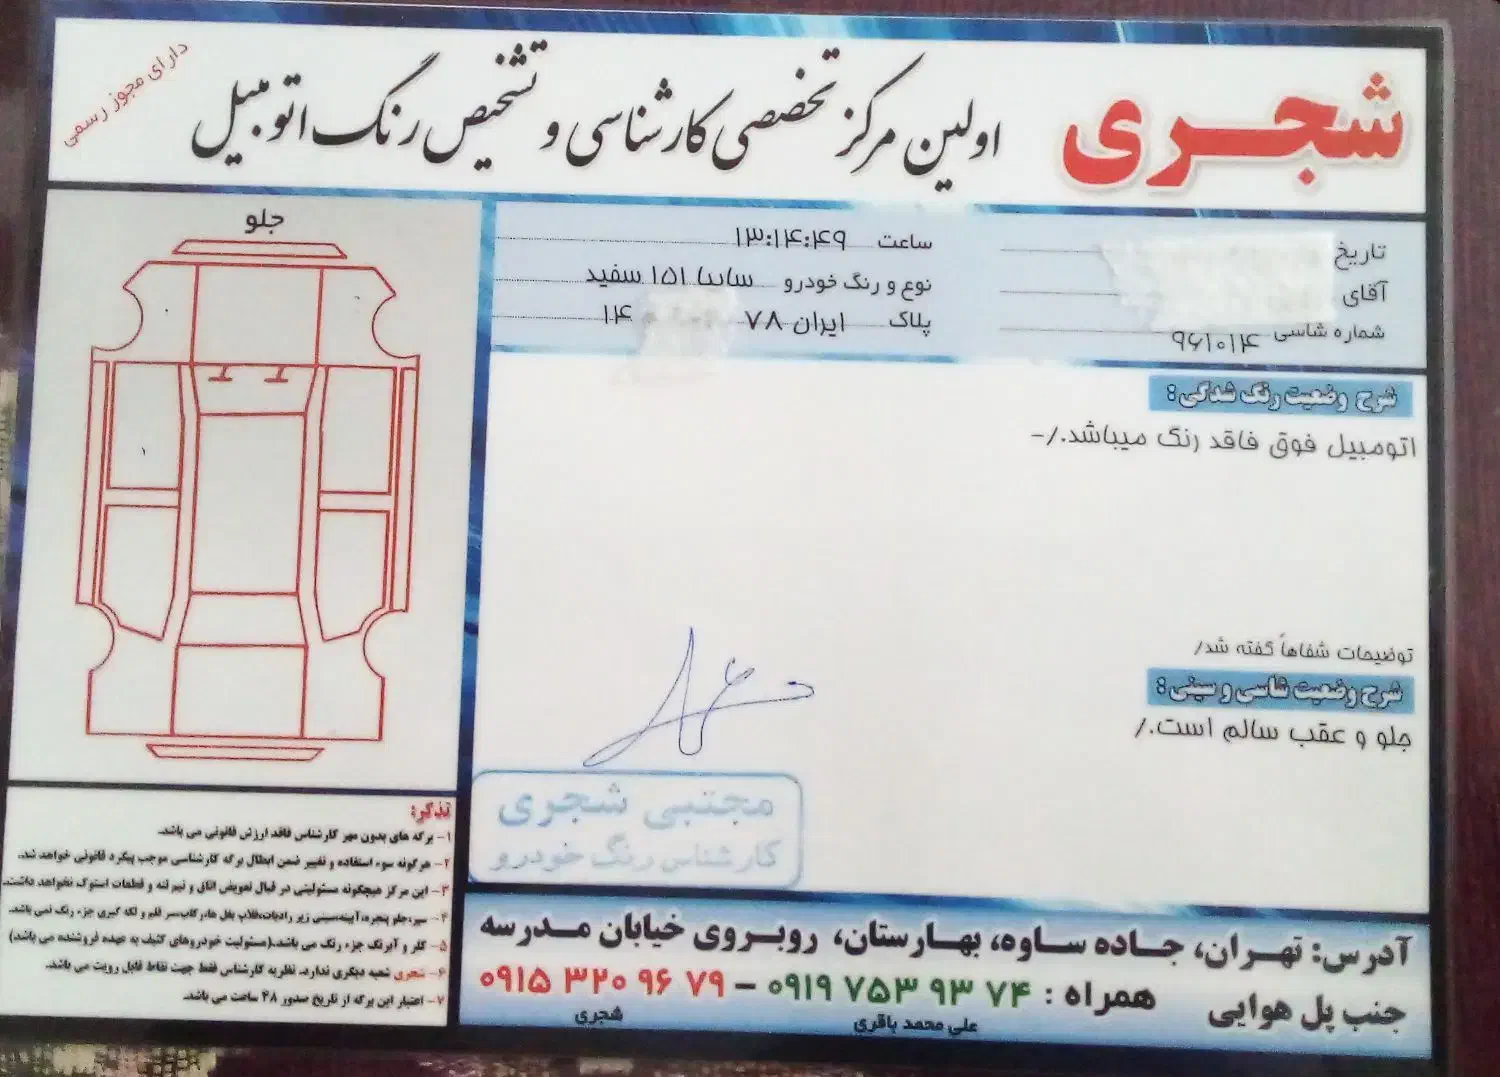 شجری
اولین مرکز تخصصی کارشناسی و تشخیص رنگ اتومبیل
دارای مجوز رسمی
تاریخ
ساعت ۱۳:۱۴:۴۹
آقای
نوع و رنگ خودرو سایپا ۱۵۱ سفید
شماره شاسی ۹۶۱۰۱۴
پلاک ایران ۷۸ ۱۴
جلو
۱
شرح وضعیت رنگ شدگی:
اتومبیل فوق فاقد رنگ میباشد./-
توضیحات شفاهاً گفته شد/
شرح وضعیت شاسی و سینی:
جلو و عقب سالم است./
مجتبی شجری
کارشناس رنگ خودرو
تذکر:
۱- برگه های بدون مهر کارشناس فاقد ارزش قانونی می باشد.
۲- هرگونه سوء استفاده و تغییر ضمن ابطال برگه کارشناسی موجب پیگرد قانونی خواهد شد.
۳- این مرکز هیچگونه مسئولیتی در قبال تعویض اتاق و نیم تنه و قطعات استوک نخواهد داشت.
۴- سپر،جلو پنجره،آینه،سینی زیر رادیات،قلاب بغل ها،رکاب،سر قلم و لکه گیری جزء رنگ نمی باشد.
۵- کلر و آبرنگ جزء رنگ می باشد.(مسئولیت خودروهای کثیف به عهده فروشنده می باشد)
۶- شجری شعبه دیگری ندارد. نظریه کارشناس فقط جهت نقاط قابل رویت می باشد.
۷- اعتبار این برگه از تاریخ صدور ۴۸ ساعت می باشد.
آدرس: تهران، جاده ساوه، بهارستان، روبروی خیابان مدرسه
جنب پل هوایی
همراه : ۰۹۱۹ ۷۵۳ ۹۳ ۷۴ – ۰۹۱۵ ۳۲۰ ۹۶ ۷۹
علی محمد باقری
شجری